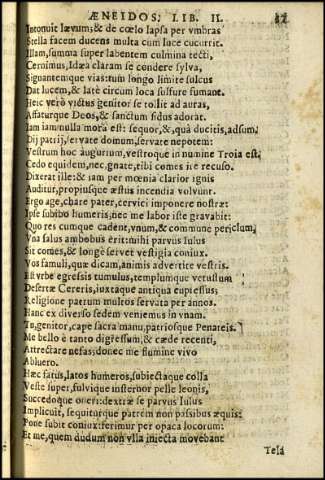 ÆNEIDOS, LIB. II. 87
Intonuit lævum; & de cœlo lapsa per vmbras
Stella facem ducens multa cum luce cucurrit.
Illam, summa super labentem culmina tecti,
Cernimus, Idæa claram se condere sylva,
Signantemque vias: tum longo limite sulcus
Dat lucem, & latè circum loca sulfure fumant.
Heic verò victus genitor se tollit ad auras,
Affaturque Deos, & sanctum sidus adorat.
Iam iam nulla mora est: sequor, & quà ducitis, adsum.
Dij patrij, servate domum, servate nepotem:
Vestrum hoc augurium, vestroque in numine Troia est.
Cedo equidem, nec, gnate, tibi comes ire recuso.
Dixerat ille: & iam per mœnia clarior ignis
Auditur, propiusque æstus incendia volvunt.
Ergo age, chare pater, cervici imponere nostræ:
Ipse subibo humeris, nec me labor iste gravabit:
Quo res cumque cadent, vnum, & commune periclum,
Vna salus ambobus erit: mihi parvus Iulus
Sit comes, & longè servet vestigia coniux.
Vos famuli, quæ dicam, animis advertite vestris.
Est vrbe egressis tumulus, templumque vetustum
Desertæ Cereris, iuxtaque antiqua cupressus;
Religione patrum multos servata per annos.
Hanc ex diverso sedem veniemus in vnam.
Tu, genitor, cape sacra manu, patriosque Penateis.
Me bello è tanto digressum, & cæde recenti,
Attrectare nefas; donec me flumine vivo
Abluero.
Hæc fatus, latos humeros, subiectaque colla
Veste super, fulvique insternor pelle leonis,
Succedoque oneri: dextræ se parvus Iulus
Implicuit, sequiturque patrem non passibus æquis:
Pone subit coniux: ferimur per opaca locorum:
Et me, quem dudum non vlla iniecta movebant
Tela